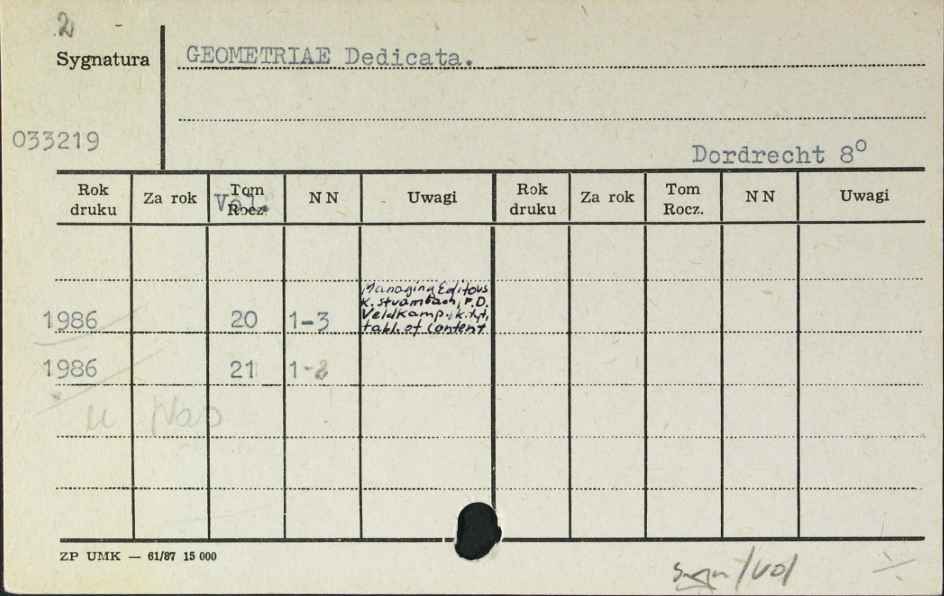 2 -
Sygnatura GEOMETRIAE Dedicata.
033219
Dordrecht 8°
Rok druku Za rok Tom Rocz. Vol. NN Uwagi Rok druku Za rok Tom Rocz. NN Uwagi
Managing Editors
K. Strambach, F.D.
Veldkamp., k.tyt,
tabl. of content
1986 20 1-3
1986 21 1-2
u
ZP UMK — 61/87 15 000
sygn/vol